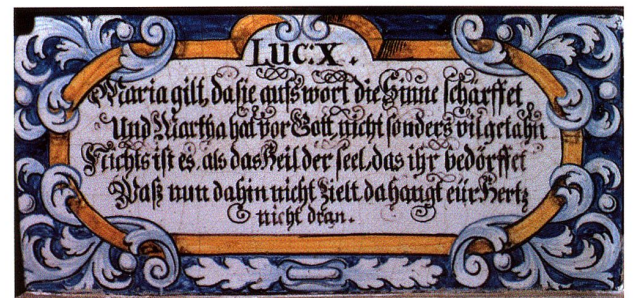 Luc: X.
Maria gilt, da sie aufs wort die Sinne schärffet
Und Martha hat vor Gott nicht sonders vil getahn
Nichts ist es, als das Heil der seel, das ihr bedörffet
Waß nun dahin nicht zielt da hangt eür Hertz
nicht dran.